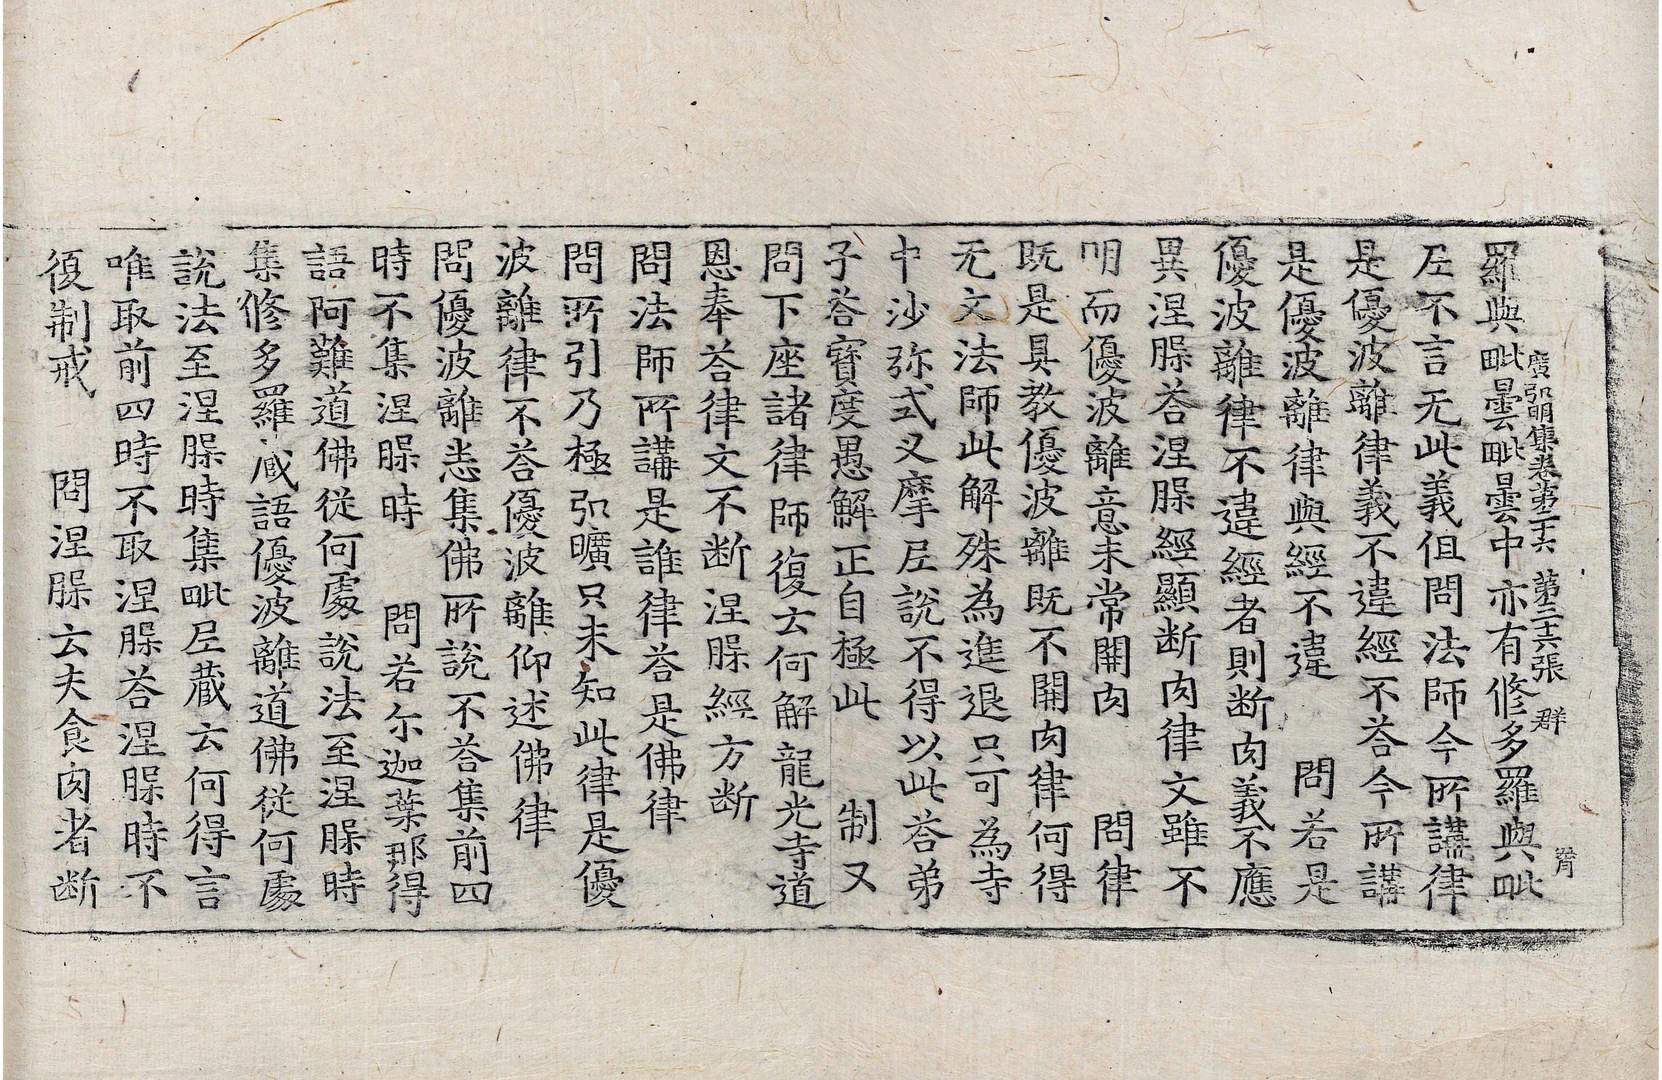 廣弘明集卷第二十六 第二十六張 群
羅與毗曇毗曇中亦有修多羅與毗
𡰱不言无此義但問法師今所講律
是優波離律義不違經不荅今所講
是優波離律與經不違 問若是
優波離律不違經者則断肉義不應
異涅槃荅涅槃經顯断肉律文雖不
明而優波離意未常開肉 問律
既是具教優波離既不開肉律何得
无文法師此解殊為進退只可為寺
中沙弥式叉摩𡰱說不得以此荅弟
子荅寳度愚解正自極此 制又
問下座諸律師復云何解龍光寺道
恩奉荅律文不断涅槃經方断
問法師所講是誰律荅是佛律
問所引乃極弘曠只未知此律是優
波離律不荅優波離仰述佛律
問優波離悉集佛所說不荅集前四
時不集涅槃時 問若尒迦葉那得
語阿難道佛從何處說法至涅槃時
集修多羅藏語優波離道佛從何處
說法至涅槃時集毗𡰱藏云何得言
唯取前四時不取涅槃時荅涅槃時不
復制戒 問涅槃云夫食肉者断